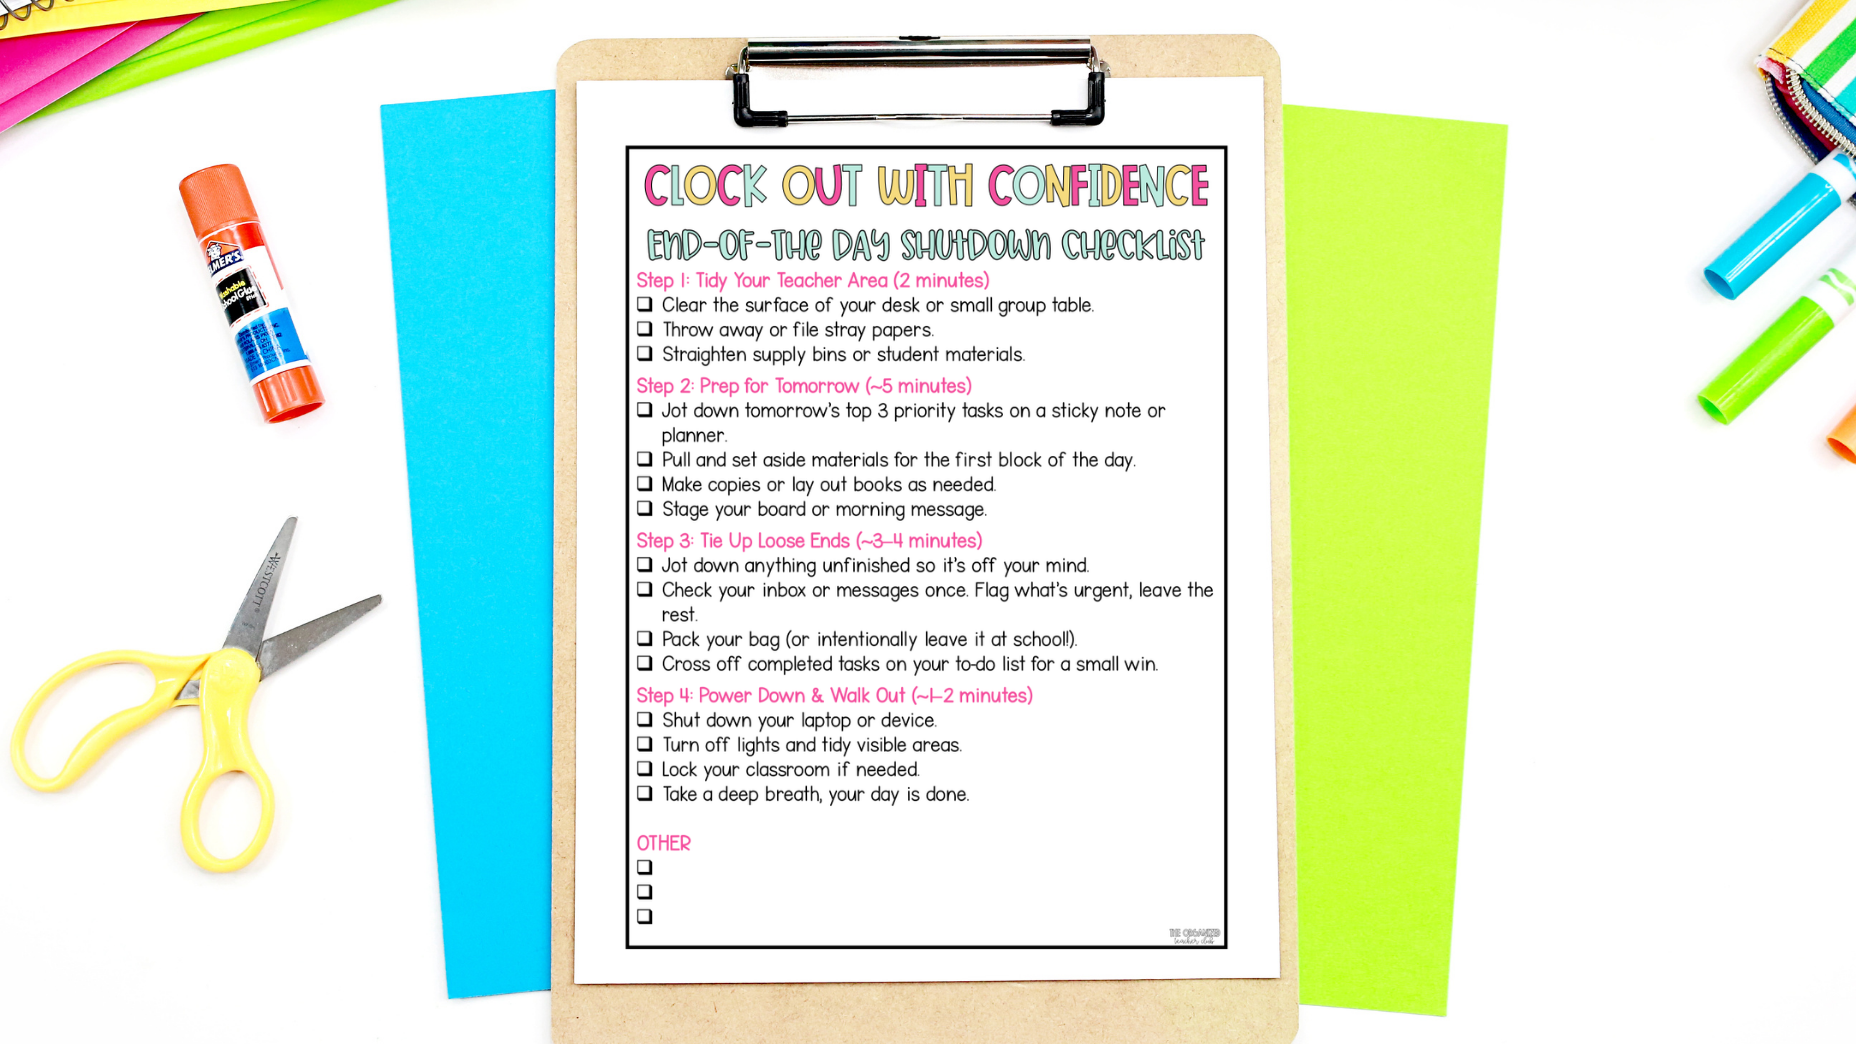 CLOCK OUT WITH CONFIDENCE
END-OF-THE DAY SHUTDOWN CHECKLIST
Step 1: Tidy Your Teacher Area (2 minutes)
❑ Clear the surface of your desk or small group table.
❑ Throw away or file stray papers.
❑ Straighten supply bins or student materials.
Step 2: Prep for Tomorrow (~5 minutes)
❑ Jot down tomorrow's top 3 priority tasks on a sticky note or
planner.
❑ Pull and set aside materials for the first block of the day.
❑ Make copies or lay out books as needed.
❑ Stage your board or morning message.
Step 3: Tie Up Loose Ends (~3–4 minutes)
❑ Jot down anything unfinished so it's off your mind.
❑ Check your inbox or messages once. Flag what's urgent, leave the
rest.
❑ Pack your bag (or intentionally leave it at school!).
❑ Cross off completed tasks on your to-do list for a small win.
Step 4: Power Down & Walk Out (~1–2 minutes)
❑ Shut down your laptop or device.
❑ Turn off lights and tidy visible areas.
❑ Lock your classroom if needed.
❑ Take a deep breath, your day is done.
OTHER
❑
❑
❑
THE ORGANIZED
teacher club
ELMER'S
Washable
School Glue
WESTCOTT